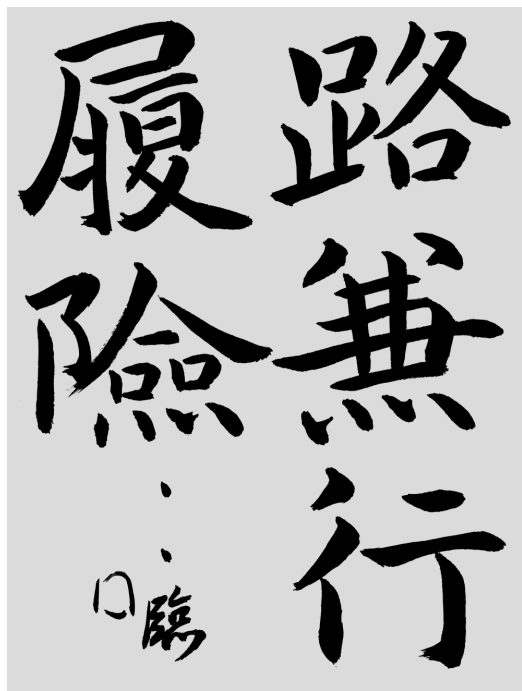 路兼行
履險
臨